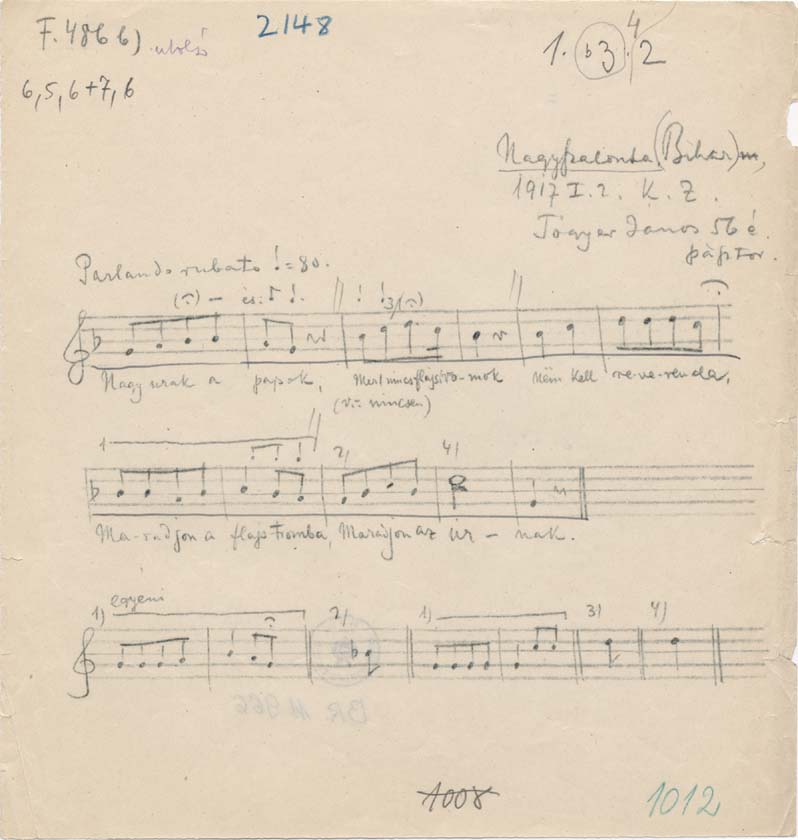 F. 486 b) utolsó
2148
1. ♭3. 4/2
6, 5, 6+7, 6
Nagyszalonta, (Bihar) m,
1917 I. 2. K. Z.
János 56 é.
pásztor.
Parlando rubato = 80.
és:
3)
Nagy urak a papok, Mert nincs nem kell re-ve-renda,
(v.: nincsen)
1 2) 4)
Ma-radjon a Maradjon az úr - nak.
1) egyéni 2) 1) 3) 4)
BR 11966
1008
1012